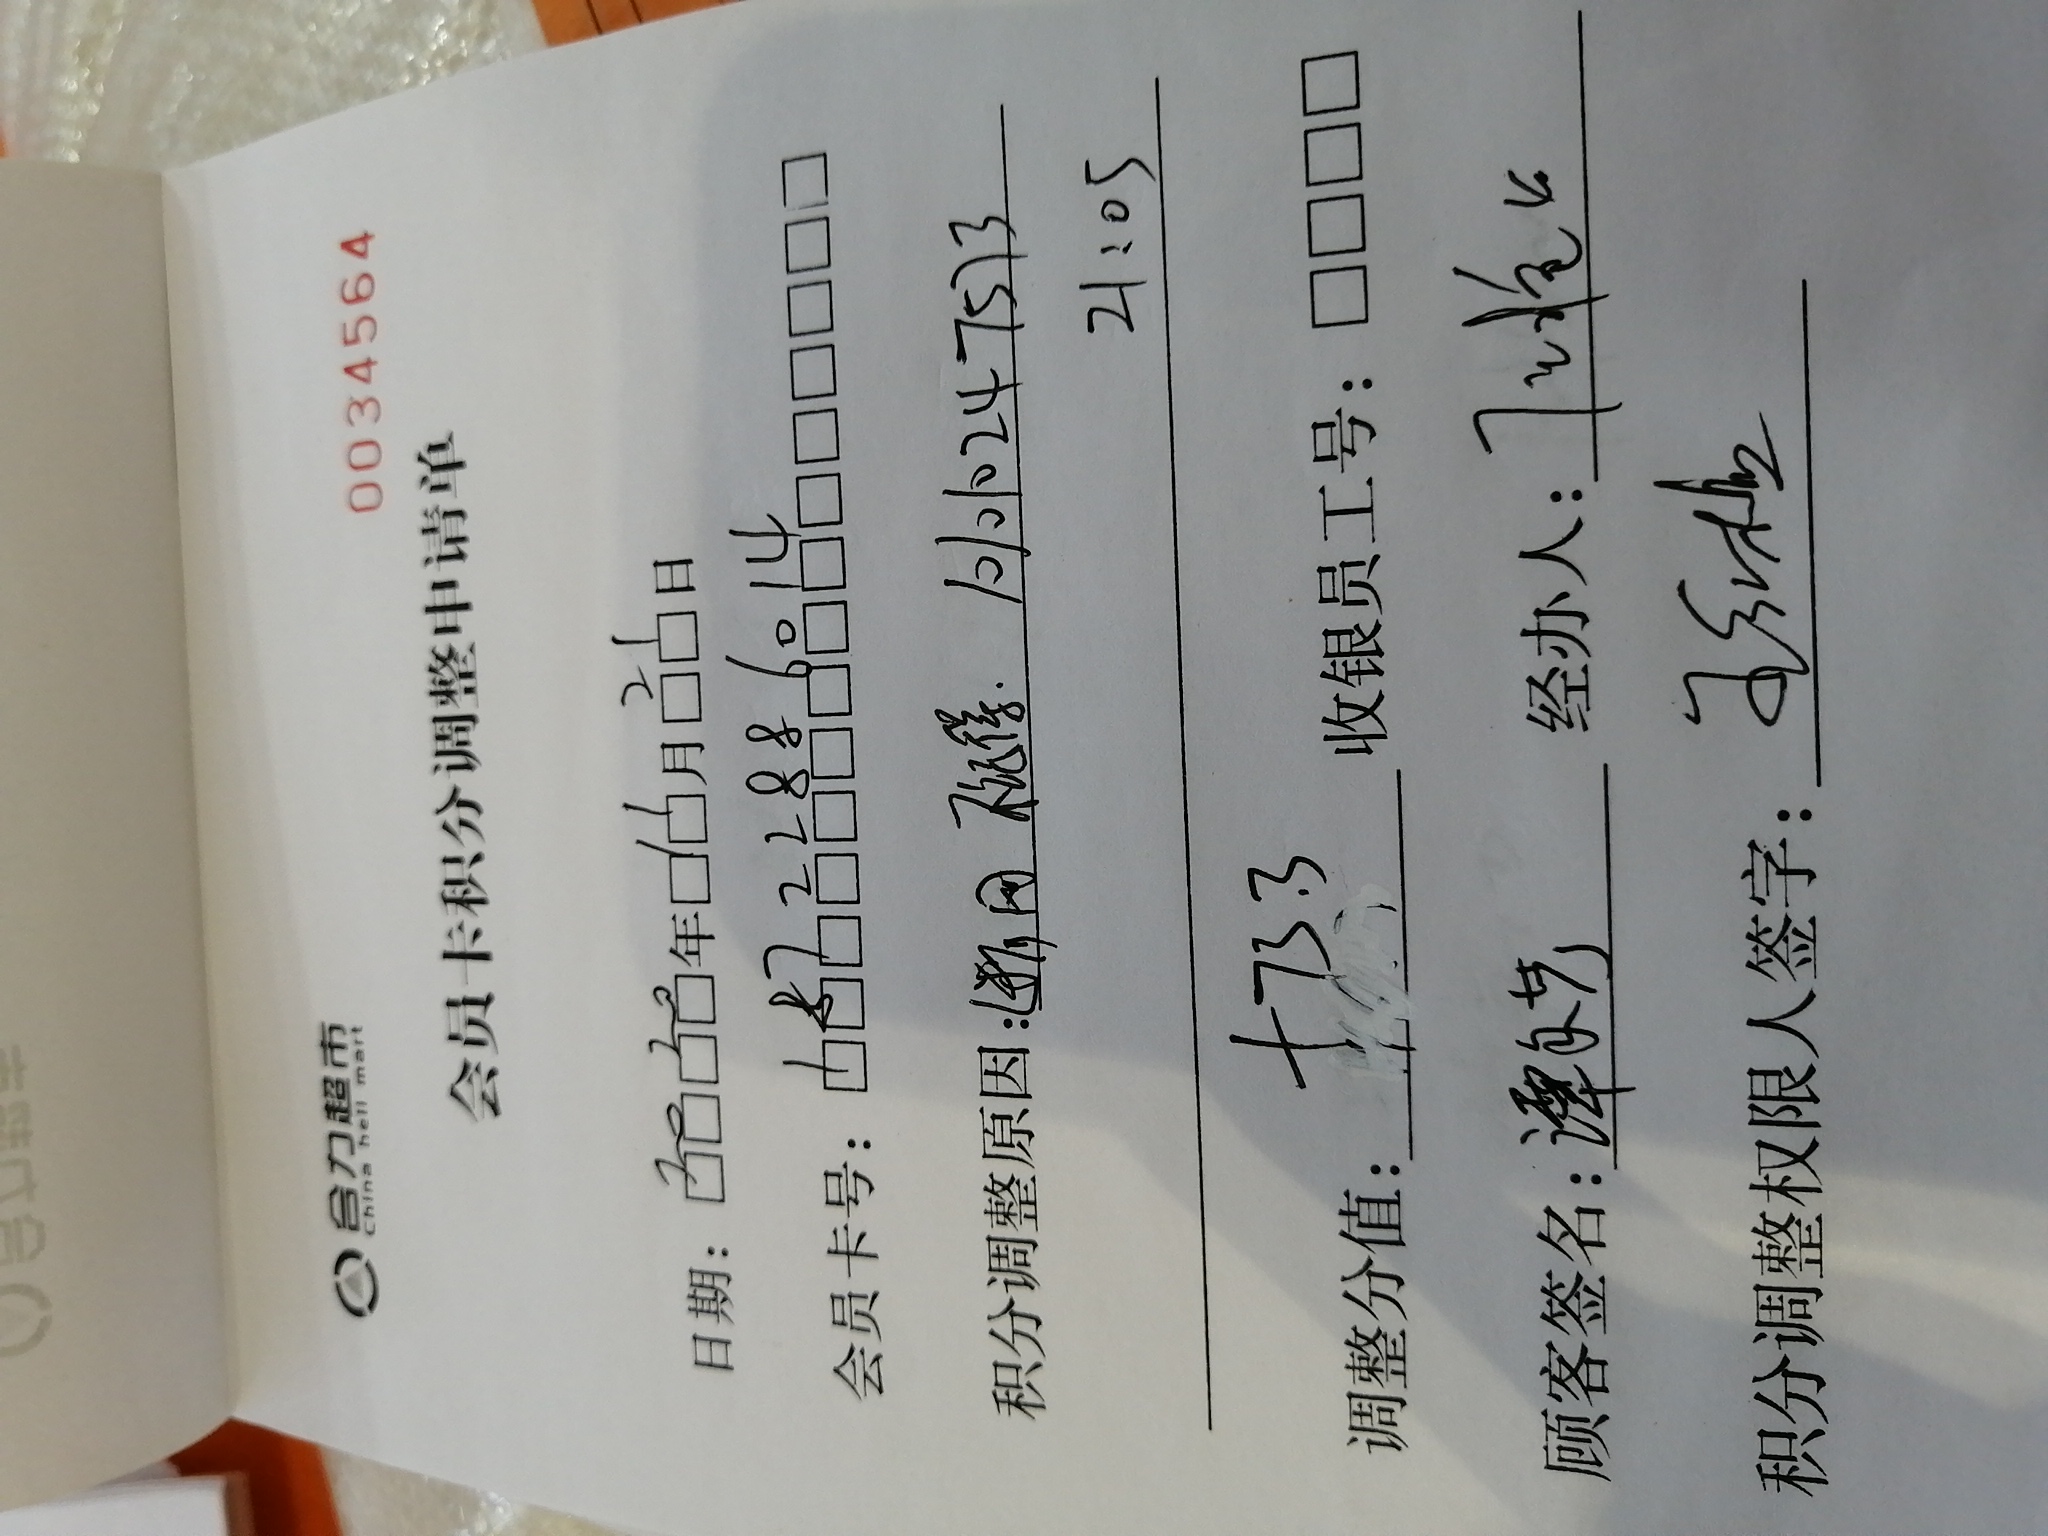 00034564
合力超市
China heli mart
会员卡积分调整申请单
日期：2020年11月21日
会员卡号：18722886014
积分调整原因：断网 1010247513
21:05
调整分值：+73.3 收银员工号：
顾客签名：谭 经办人：
积分调整权限人签字：